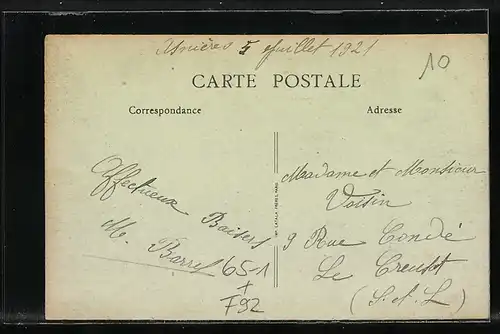 Asnières 5 Juillet 1921
10
CARTE POSTALE
Correspondance
Adresse
Affectueux Baisers
M. Barrel
651
+
F92
IMP. CATALA FRÈRES, PARIS
Madame et Monsieur
Voisin
9 Rue Condé
Le Creusot
(S. et L)